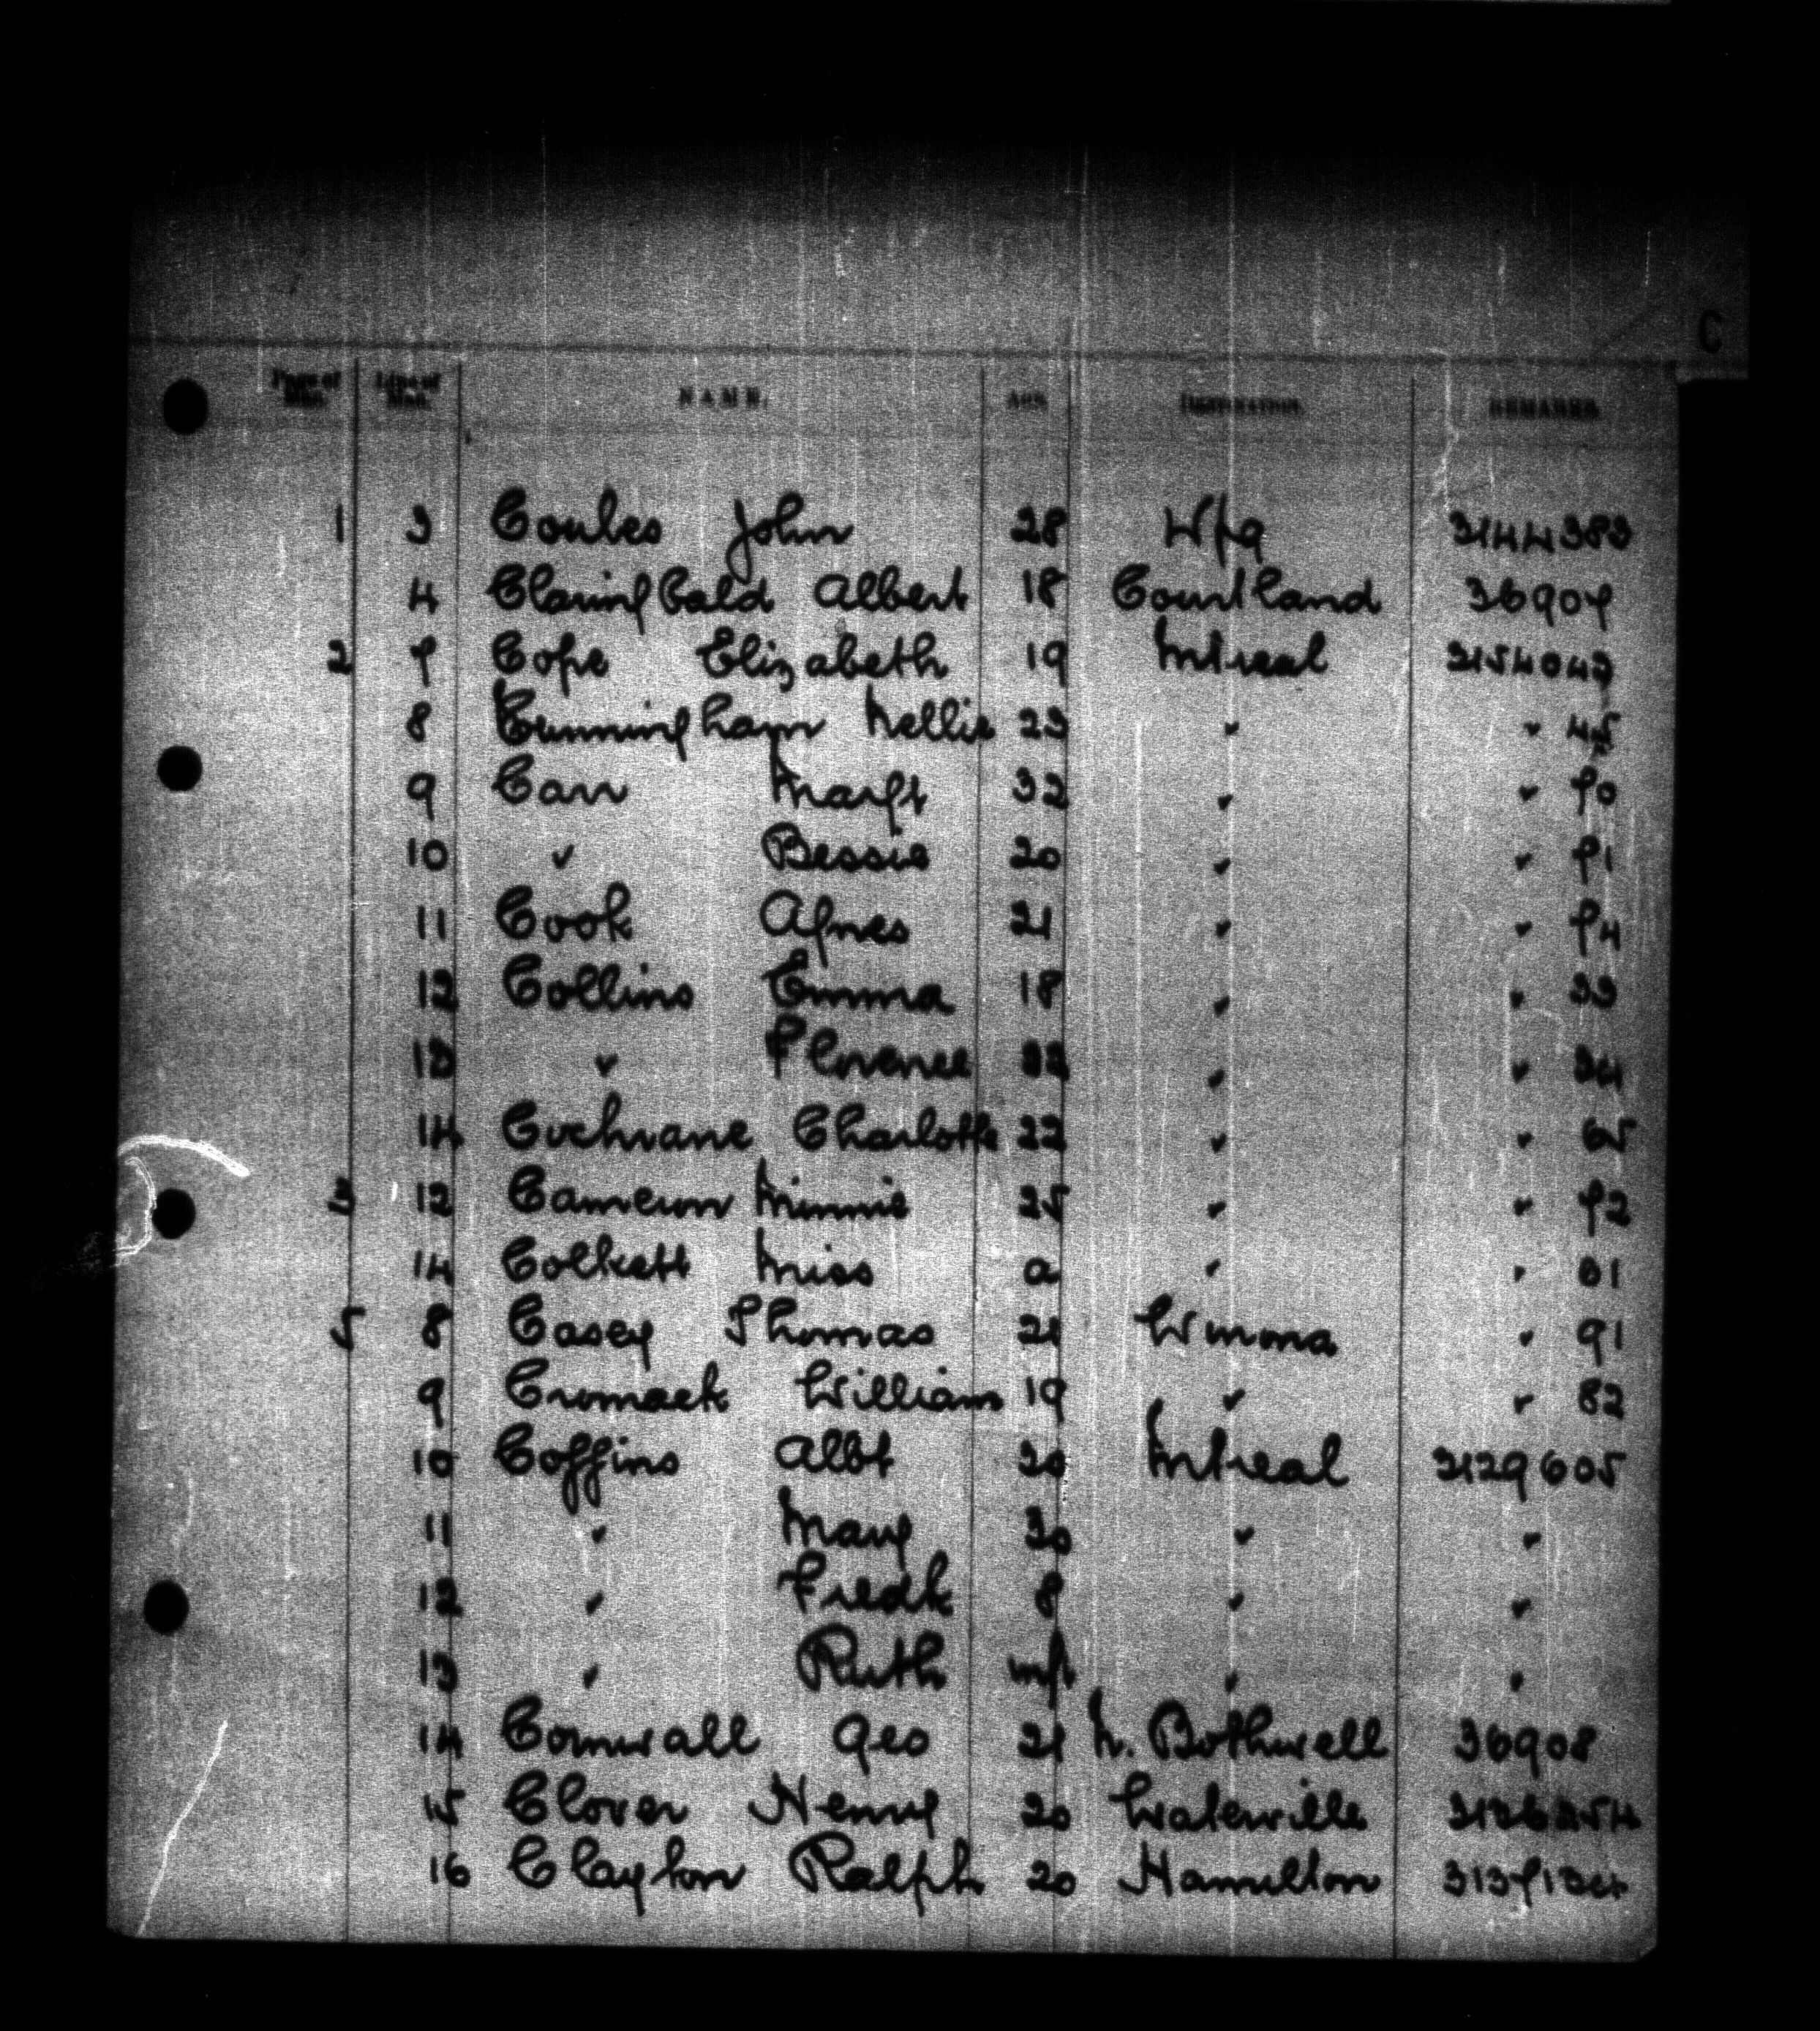 C
Page of Man. Line of Man. NAME. AGE. DESTINATION. REMARKS.
1 3 Coules John 28 Wpg 3144383
4 Claringbald Albert 18 Courtland 36907
2 7 Cope Elizabeth 19 Mtreal 3154042
8 Cunningham Nellie 23 " " 45
9 Carr Margt 32 " " 70
10 " Bessie 20 " " 71
11 Cook Agnes 21 " " 74
12 Collins Emma 18 " " 33
13 " Florence 22 " " 34
14 Cochrane Charlotte 22 " " 65
3 12 Cameron Minnie 25 " " 72
14 Colkett Miss a " " 81
5 8 Casey Thomas 21 Winona " 91
9 Cromack William 19 " " 82
10 Coffins Albt 30 Mtreal 3129605
11 " Mary 30 " "
12 " Fredk 8 " "
13 " Ruth inft " "
14 Cornwall Geo 21 N. Bothwell 36908
15 Clover Henry 20 Waterville
16 Clayton Ralph 20 Hamilton 3137134